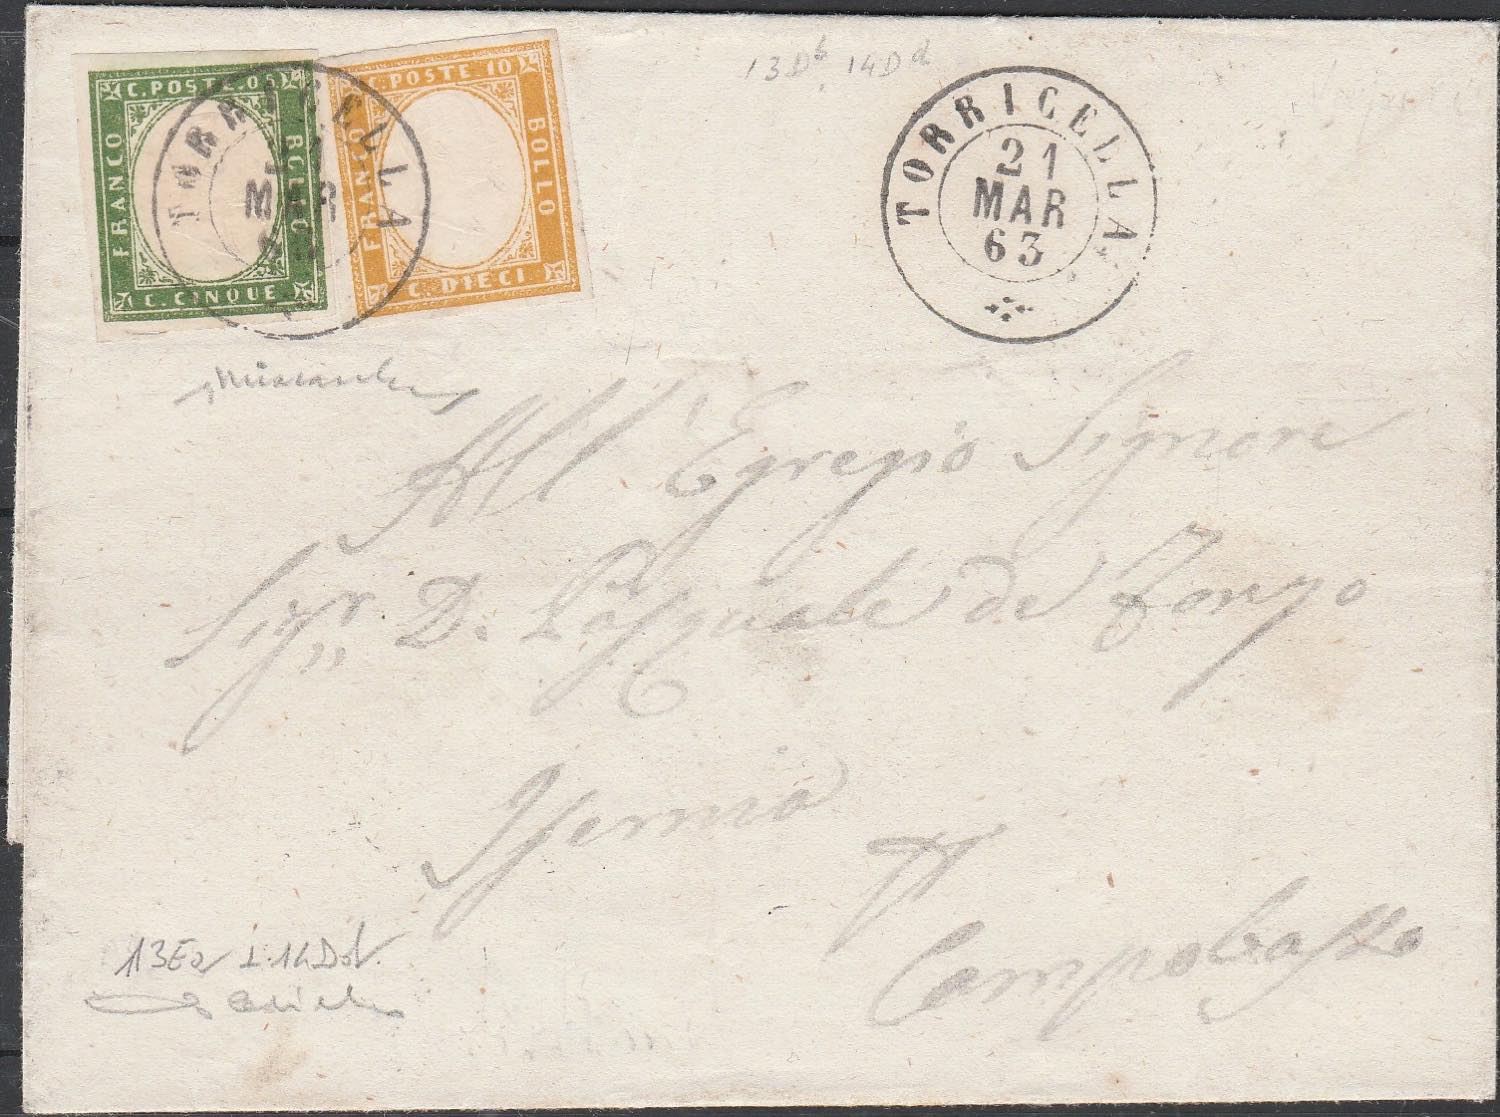 C. POSTE. 05
FRANCO
BOLLO
C. CINQUE
C. POSTE. 10
FRANCO
BOLLO
C. DIECI.
TORRICELLA
MAR
13Db 14Dd
TORRICELLA
21
MAR
63
All' Egregio Signore
Sigr D. Pasquale de
Isernia
Campobasso